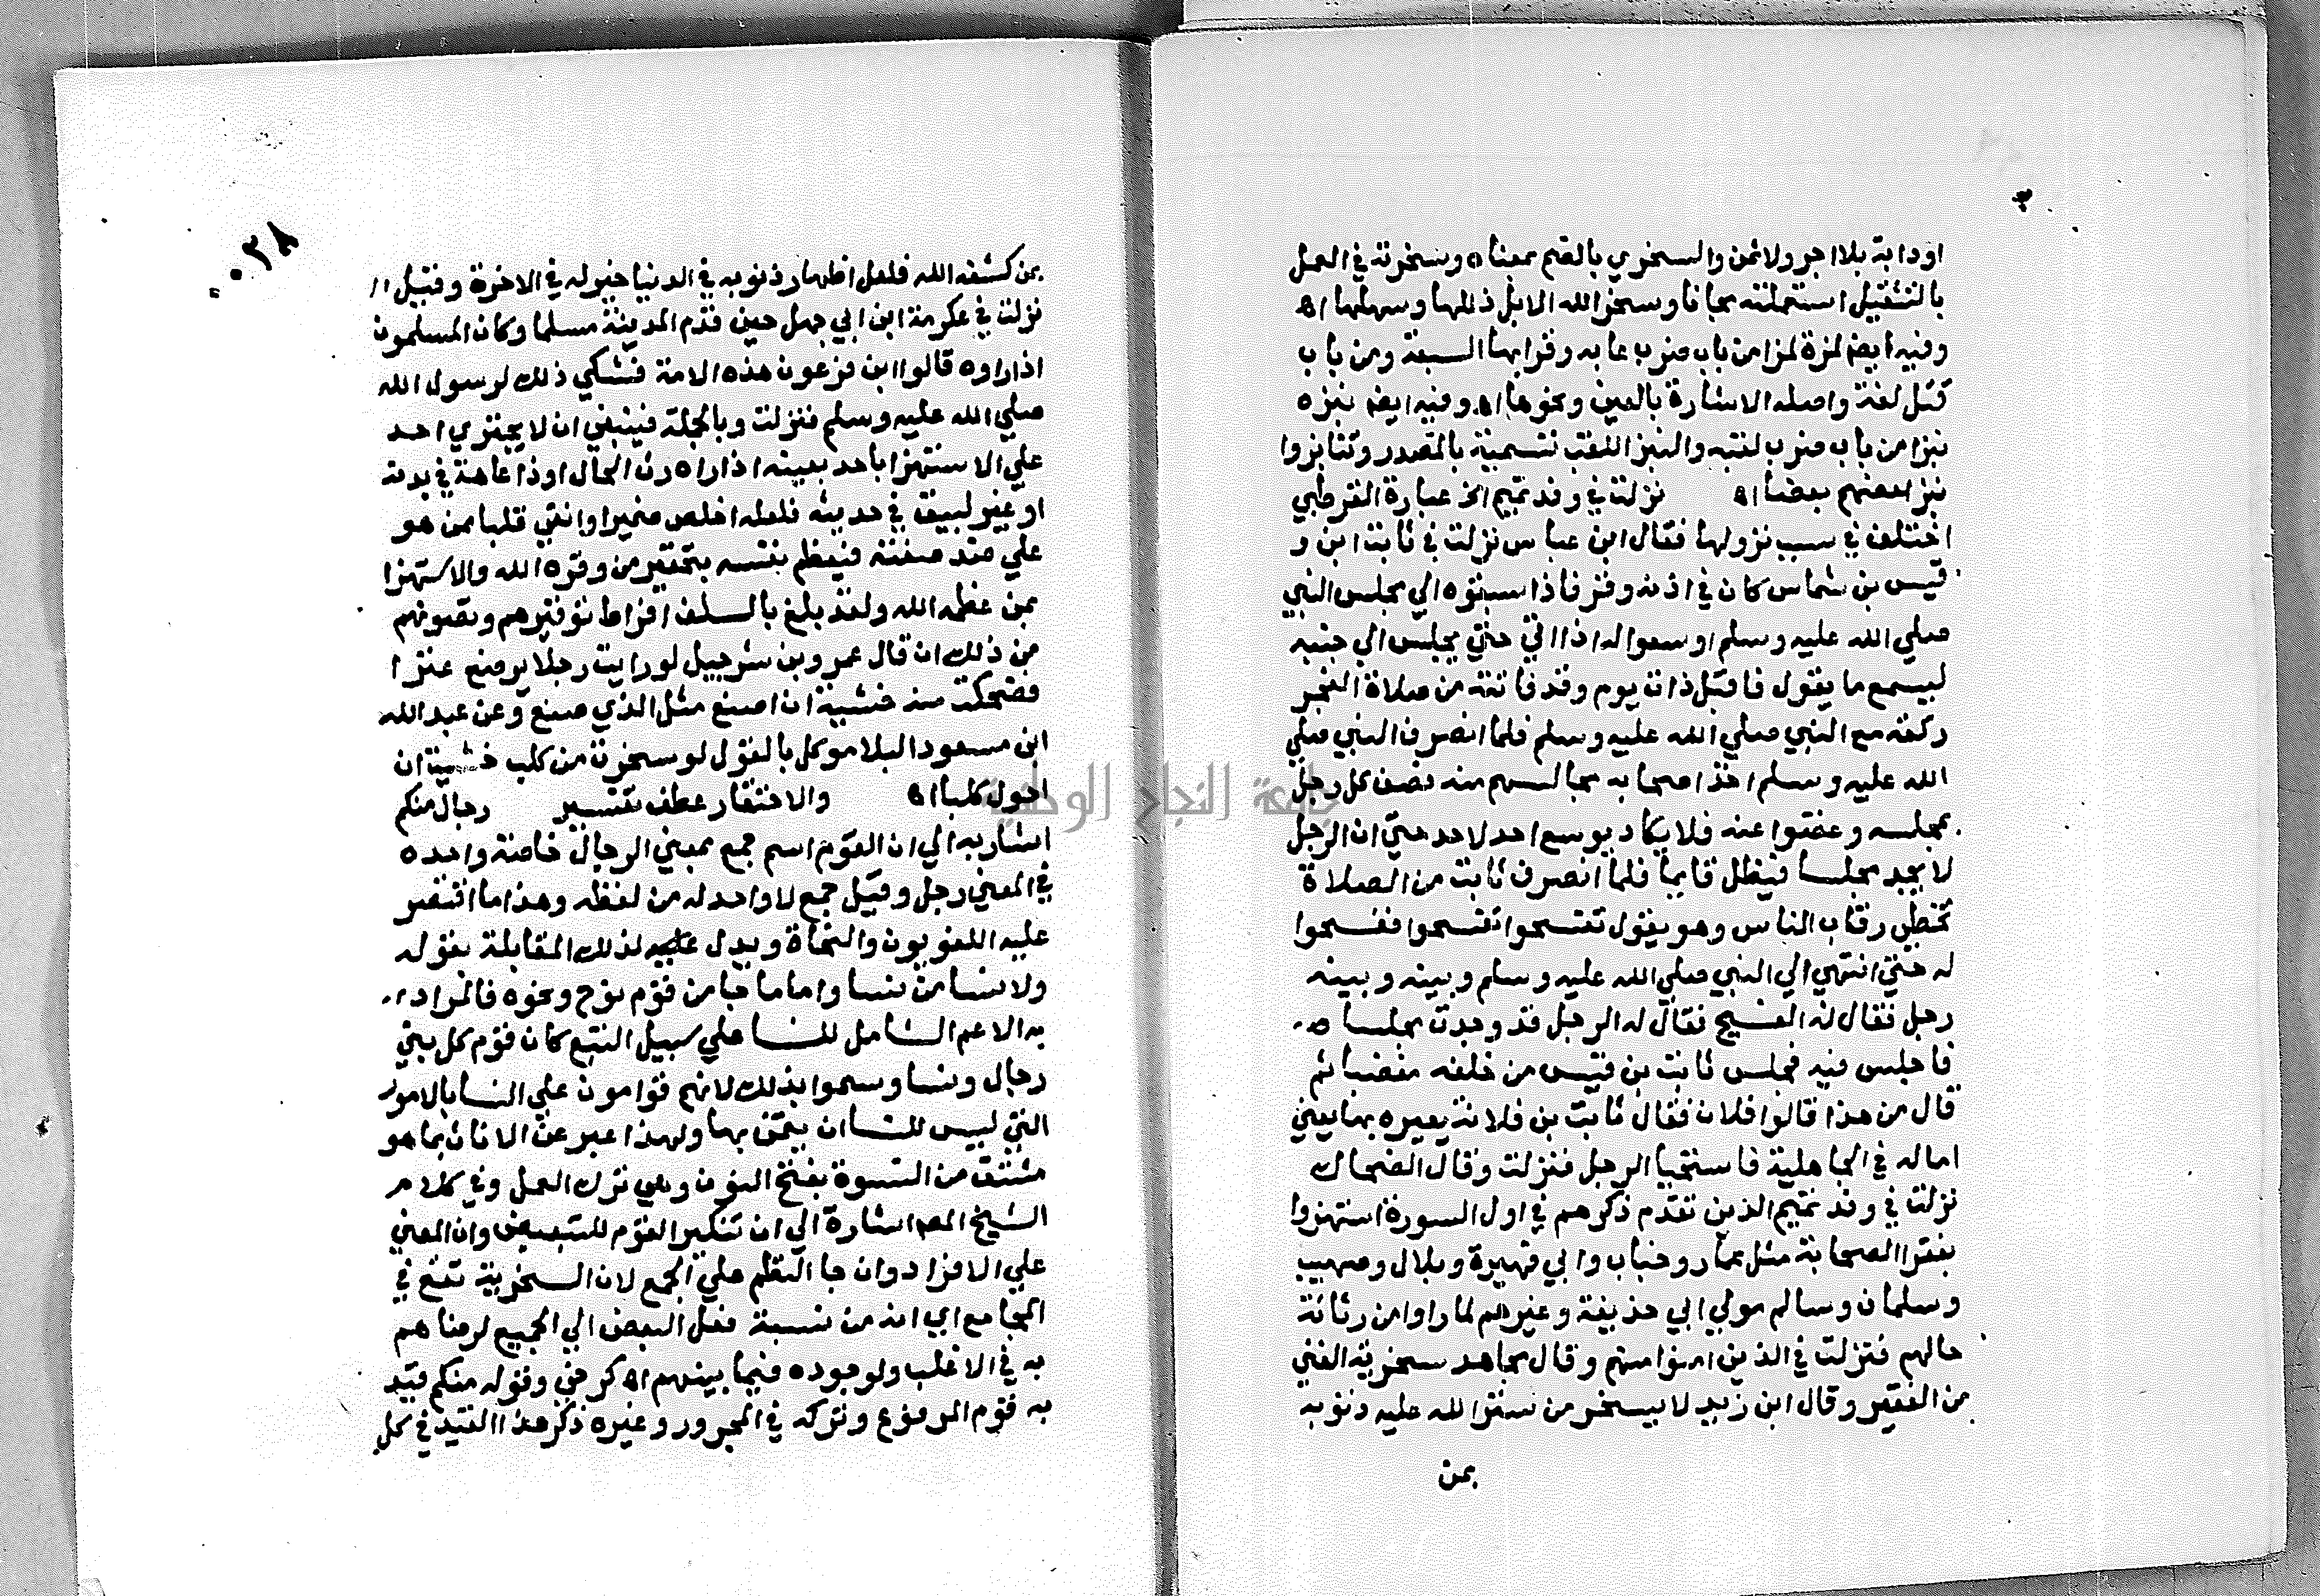 او دابة بلا اجر ولا ثمن والسخري بالضم بمعناه وسخرته في العمل
بالتثقيل استعملته مجانا وسخر الله الابل ذللها وسهلها اه
وفيه ايضم لمزة لمزا من باب ضرب عابه وقرا بها السبعة ومن باب
قتل لغة واصله الاشارة بالعين ونحوها اه وفيه ايضم نبزه
نبزا من باب ضرب لقبه والنبز اللقب تسمية بالمصدر وتنابزوا
نبز بعضهم بعضا اه نزلت في وفد تميم الخ عبارة القرطبي
اختلف في سبب نزولها فقال ابن عباس نزلت في ثابت ابن و
قيس بن شماس كان في اذنه وقر فاذا سبقوه الي مجلس النبي
صلي الله عليه وسلم اوسعوا له اذا اتي حتي يجلس الي جنبه
ليسمع ما يقول فاقبل ذات يوم وقد فاتته من صلاة الفجر
ركعة مع النبي صلي الله عليه وسلم فلما انصرف النبي صلي
الله عليه وسلم اخذ اصحابه مجالسهم منه فصف كل رجل
بمجلسه وعضوا عنه فلا يكاد يوسع احد لاحد حتي ان الرجل
لا يجد مجلسا فيظل قايما فلما انصرف ثابت من الصلاة
تخطي رقاب الناس وهو يقول تفسحوا تفسحوا ففسحوا
له حتي انتهي الي النبي صلي الله عليه وسلم وبينه وبينه
رجل فقال له افسح فقال له الرجل قد وجدت مجلسا
فاجلس فيه فجلس ثابت بن قيس من خلفه مغضبا ثم
قال من هذا قالوا فلان فقال ثابت بن فلانة يعيره بها يعني
اماله في الجاهلية فاستحيا الرجل فنزلت وقال الضحاك
نزلت في وفد تميم الذين تقدم ذكرهم في اول السورة استهزوا
بفقرا الصحابة مثل عمار وخباب وابي فهيرة وبلال وصهيب
وسلمان وسالم مولي ابي حذيفة وغيرهم لما راوا من رثاثة
حالهم فنزلت في الذين امنوا منهم وقال مجاهد سخرية الغني
من الفقير وقال ابن زيد لا يسخر من ستر الله عليه ذنوبه
بمن
٠٣٨
بمن كشفه الله فلعل اظهار ذنوبه في الدنيا خير له في الاخرة وقيل
نزلت في عكرمة ابن ابي جهل حين قدم المدينة مسلما وكان المسلمون
اذا راوه قالوا ابن فرعون هذه الامة فشكي ذلك لرسول الله
صلي الله عليه وسلم فنزلت وبالجملة فينبغي ان لا يجتري احد
علي الاستهزا باحد بعينه اذا راه رث الحال او ذا عاهة في بدنه
او غير لبيق في حديثه فلعله اخلص ضميرا وانقي قلبا ممن هو
علي ضد صفته فيظلم نفسه بتحقير من وقره الله والاستهزا
بمن عظمه الله ولقد بلغ بالسلف افراط توقيرهم وتصونهم
من ذلك ان قال عمرو بن شرحبيل لو رايت رجلا يرضع عنزا
فضحكت منه خشية ان اصنع مثل الذي صنع وعن عبد الله
ابن مسعود البلا موكل بالقول لو سخرت من كلب خشيت ان
احول كلبا اه والاحتقار عطف تفسير رجال منكم
اشار به الي ان القوم اسم جمع بمعني الرجال خاصة واحده
في المعني رجل وقيل جمع لا واحد له من لفظه وهذا ما اقتصر
عليه اللغويون والنحاة ويدل عليه لذلك المقابلة بقوله
ولا نسا من نسا واما ما جا من قوم نوح ونحوه فالمراد
به الاعم الشامل للنسا علي سبيل التبع كان قوم كل بني
رجال ونسا وسموا بذلك لانهم قوامون علي النسا بالامور
التي ليس للنسا ان يتحق بها ولهذا عبر عن الاناث بما هو
مشتق من النسوة بفتح النون وهي ترك العمل وفي كلام
الشيخ المصم اشارة الي ان تنكير القوم للتبعيض وان المعني
علي الافراد وان جا النظم علي الجمع لان السخرية تقع في
المجامع اي انه من نسبة فعل البعض الي الجميع لرضاهم
به في الاغلب ولوجوده فيما بينهم اه كرخي وقوله منكم قيد
به قوم المرفوع وتركه في المجرور وغيره ذكر هذا القيد في كل
جامعة النجاح الوطنية